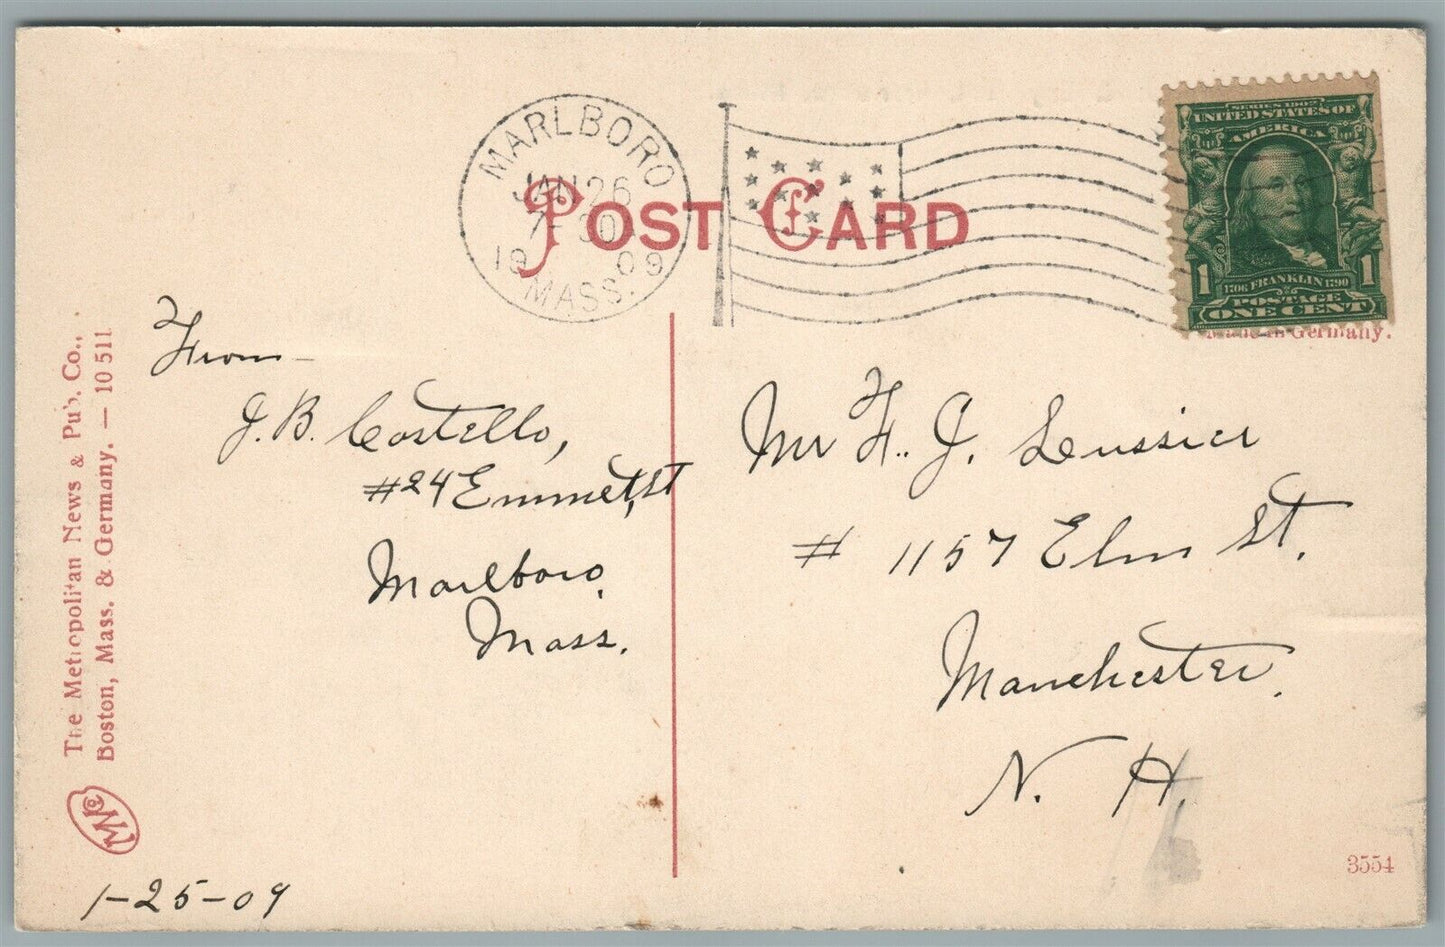 MARLBORO
JAN 26
7- 30
1909
MASS.
POST CARD
SERIES 1902
UNITED STATES OF
AMERICA
1 1
1706 FRANKLIN 1790
POSTAGE
ONE CENT
Made in Germany.
From—
J. B. Costello,
#24 Emmet, St
Marlboro.
Mass.
Mr F. J. Lussier
# 1157 Elm St.
Manchester.
N. H.
The Metropolitan News & Pub. Co.,
Boston, Mass. & Germany. — 10 511
1-25-09
3554